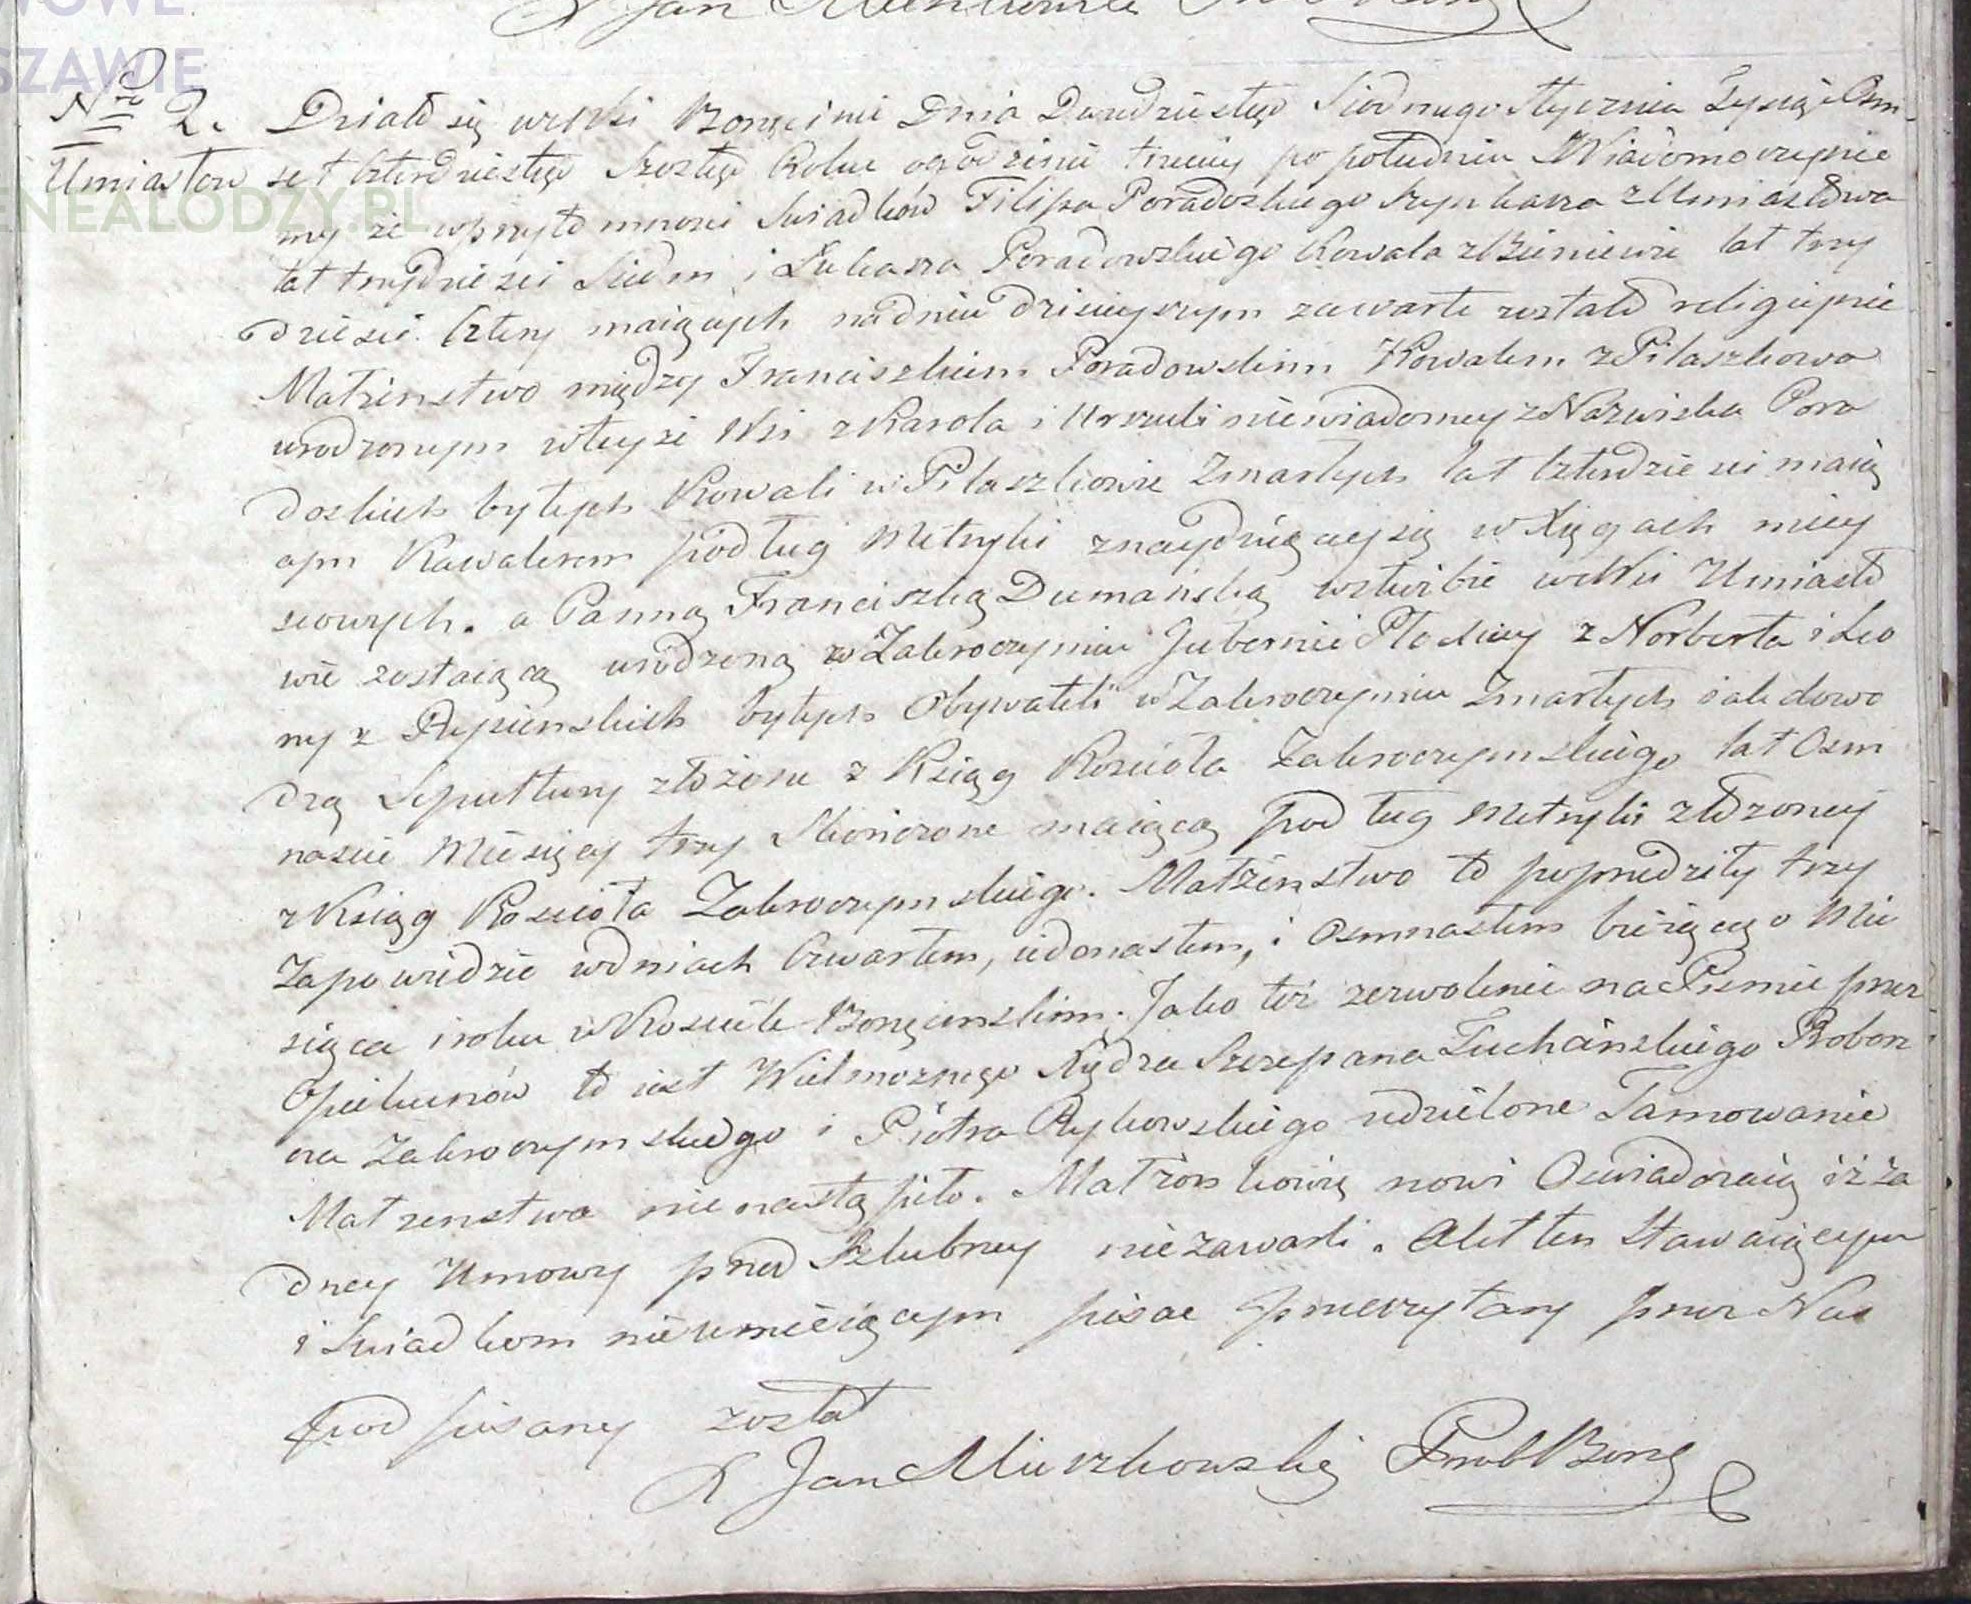 WOWE
SZAWIE
ENEALODZY.PL
X Jan
Nro 2. Działo się we Wsi Borzęcinie Dnia Dwudziestego Siodmego Stycznia Tysiąc Osm
Umiastow set Czterdziestego Szostego Roku ogodzinie trzeciey po południu Wiadomo czynie
my ze wprzytomnosci Swiadków Filipa Poradoskiego Szynkarza z Umiastowa
lat trzydziesci Siedm i Łukasza Poradowskiego Kowala z Bieniewic lat trzy
dziesci Cztery maiących nadniu dzisieyszym zawarte zostało religiynie
Małzenstwo między Franciszkiem Poradowskim Kowalem z Pilaszkowa
urodzonym wteyże Wsi z Karola i Urszuli niewiadomey z Nazwiska Pora
doskich byłych Kowali w Pilaszkowie Zmarłych lat Czterdziesci maią
cym Kawalerem podług Metryki znayduiącey się w Xięgach miey
scowych. a Panną Franciszką Dumańską wsłużbie we Wsi Umiasto
wie zostaiącą urodzoną w Zakroczymiu Gubernii Płockiey z Norberta i Leo
ny z Rypienskich byłych Obywateli w Zakroczymiu Zmarłych iak dowo
dzą Sepultury złożone z Ksiąg Kościoła Zakroczymskiego lat Osm
nascie Miesięcy trzy Skończone maiącą podług Metryki złożoney
z Ksiąg Kościoła Zakroczymskiego. Małżeństwo to poprzedziły trzy
Zapowiedzie wdniach Czwartem, iedenastem, i Osmnastem bieżącego Mie
siąca i roku w Kosciele Borzęcinskim. Jako też zezwolenie na Pismie przez
Opiekunów to iest Wielmoznego Xiędza Szczepana Tuchańskiego Probosz
cza Zakroczymskiego i Piotra Rykowskiego udzielone Tamowanie
Małzenstwa nie nastąpiło. Małżonkowie nowi Oswiadczaią iż ża
dney Umowy przed Szlubney niezawarli. Akt ten Stawaiącym
i Swiadkom nieumieiącym pisac przeczytany przez Nas
podpisany został
X Jan Mieszkowski Prob Borzę